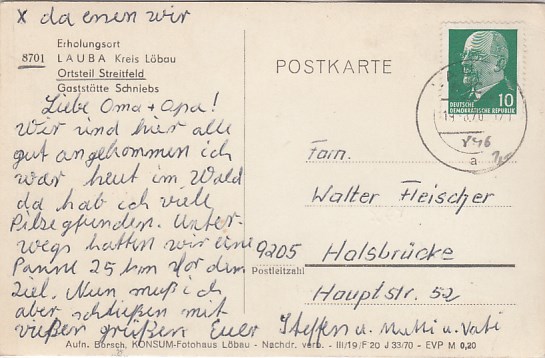 x da enen wir
Erholungsort
8701 LAUBA Kreis Löbau
Ortsteil Streitfeld
Gaststätte Schniebs
POSTKARTE
10
DEUTSCHE
DEMOKRATISCHE REPUBLIK
a
Liebe Oma + Opa!
Wir sind hier alle
gut angekommen ich
war heut im Wald
da hab ich viele
Pilze gefunden. Unter-
wegs hatten wir eine
Panne 25 km vor dem
Ziel. Nun muß ich
aber schließen mit
vießen grüßen Euer Steffen u. Mutti u. Vati
Fam.
Walter Fleischer
9205 Halsbrücke
Postleitzahl
Hauptstr. 52
Aufn. Borsch, KONSUM-Fotohaus Löbau - Nachdr. verb. - III/19/F 20 J 33/70 - EVP M 0,20